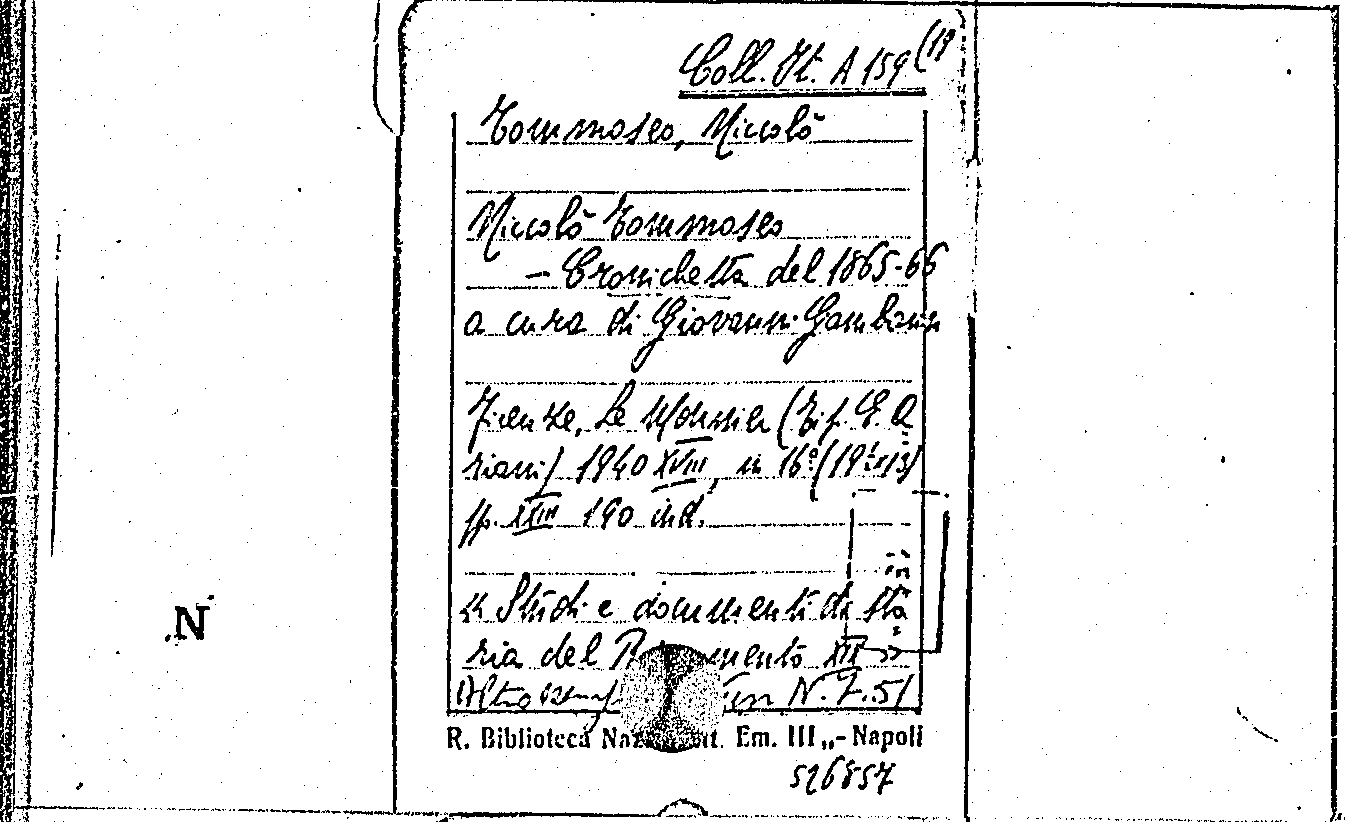 Coll. It. A 159 (19
Tommaseo, Niccolò
Niccolò Tommaseo
- Cronichetta del 1865-66
a cura di Giovanni Gambarin
Firenze, Le Monnier (Tip. E. A
riani) 1940 XVIII, in 16°
pp. XXIII 190 ind.
« Studi e documenti di sto
ria del XII »
Altro N. Z. 51
R. Biblioteca Em. III „- Napoli
526857
N